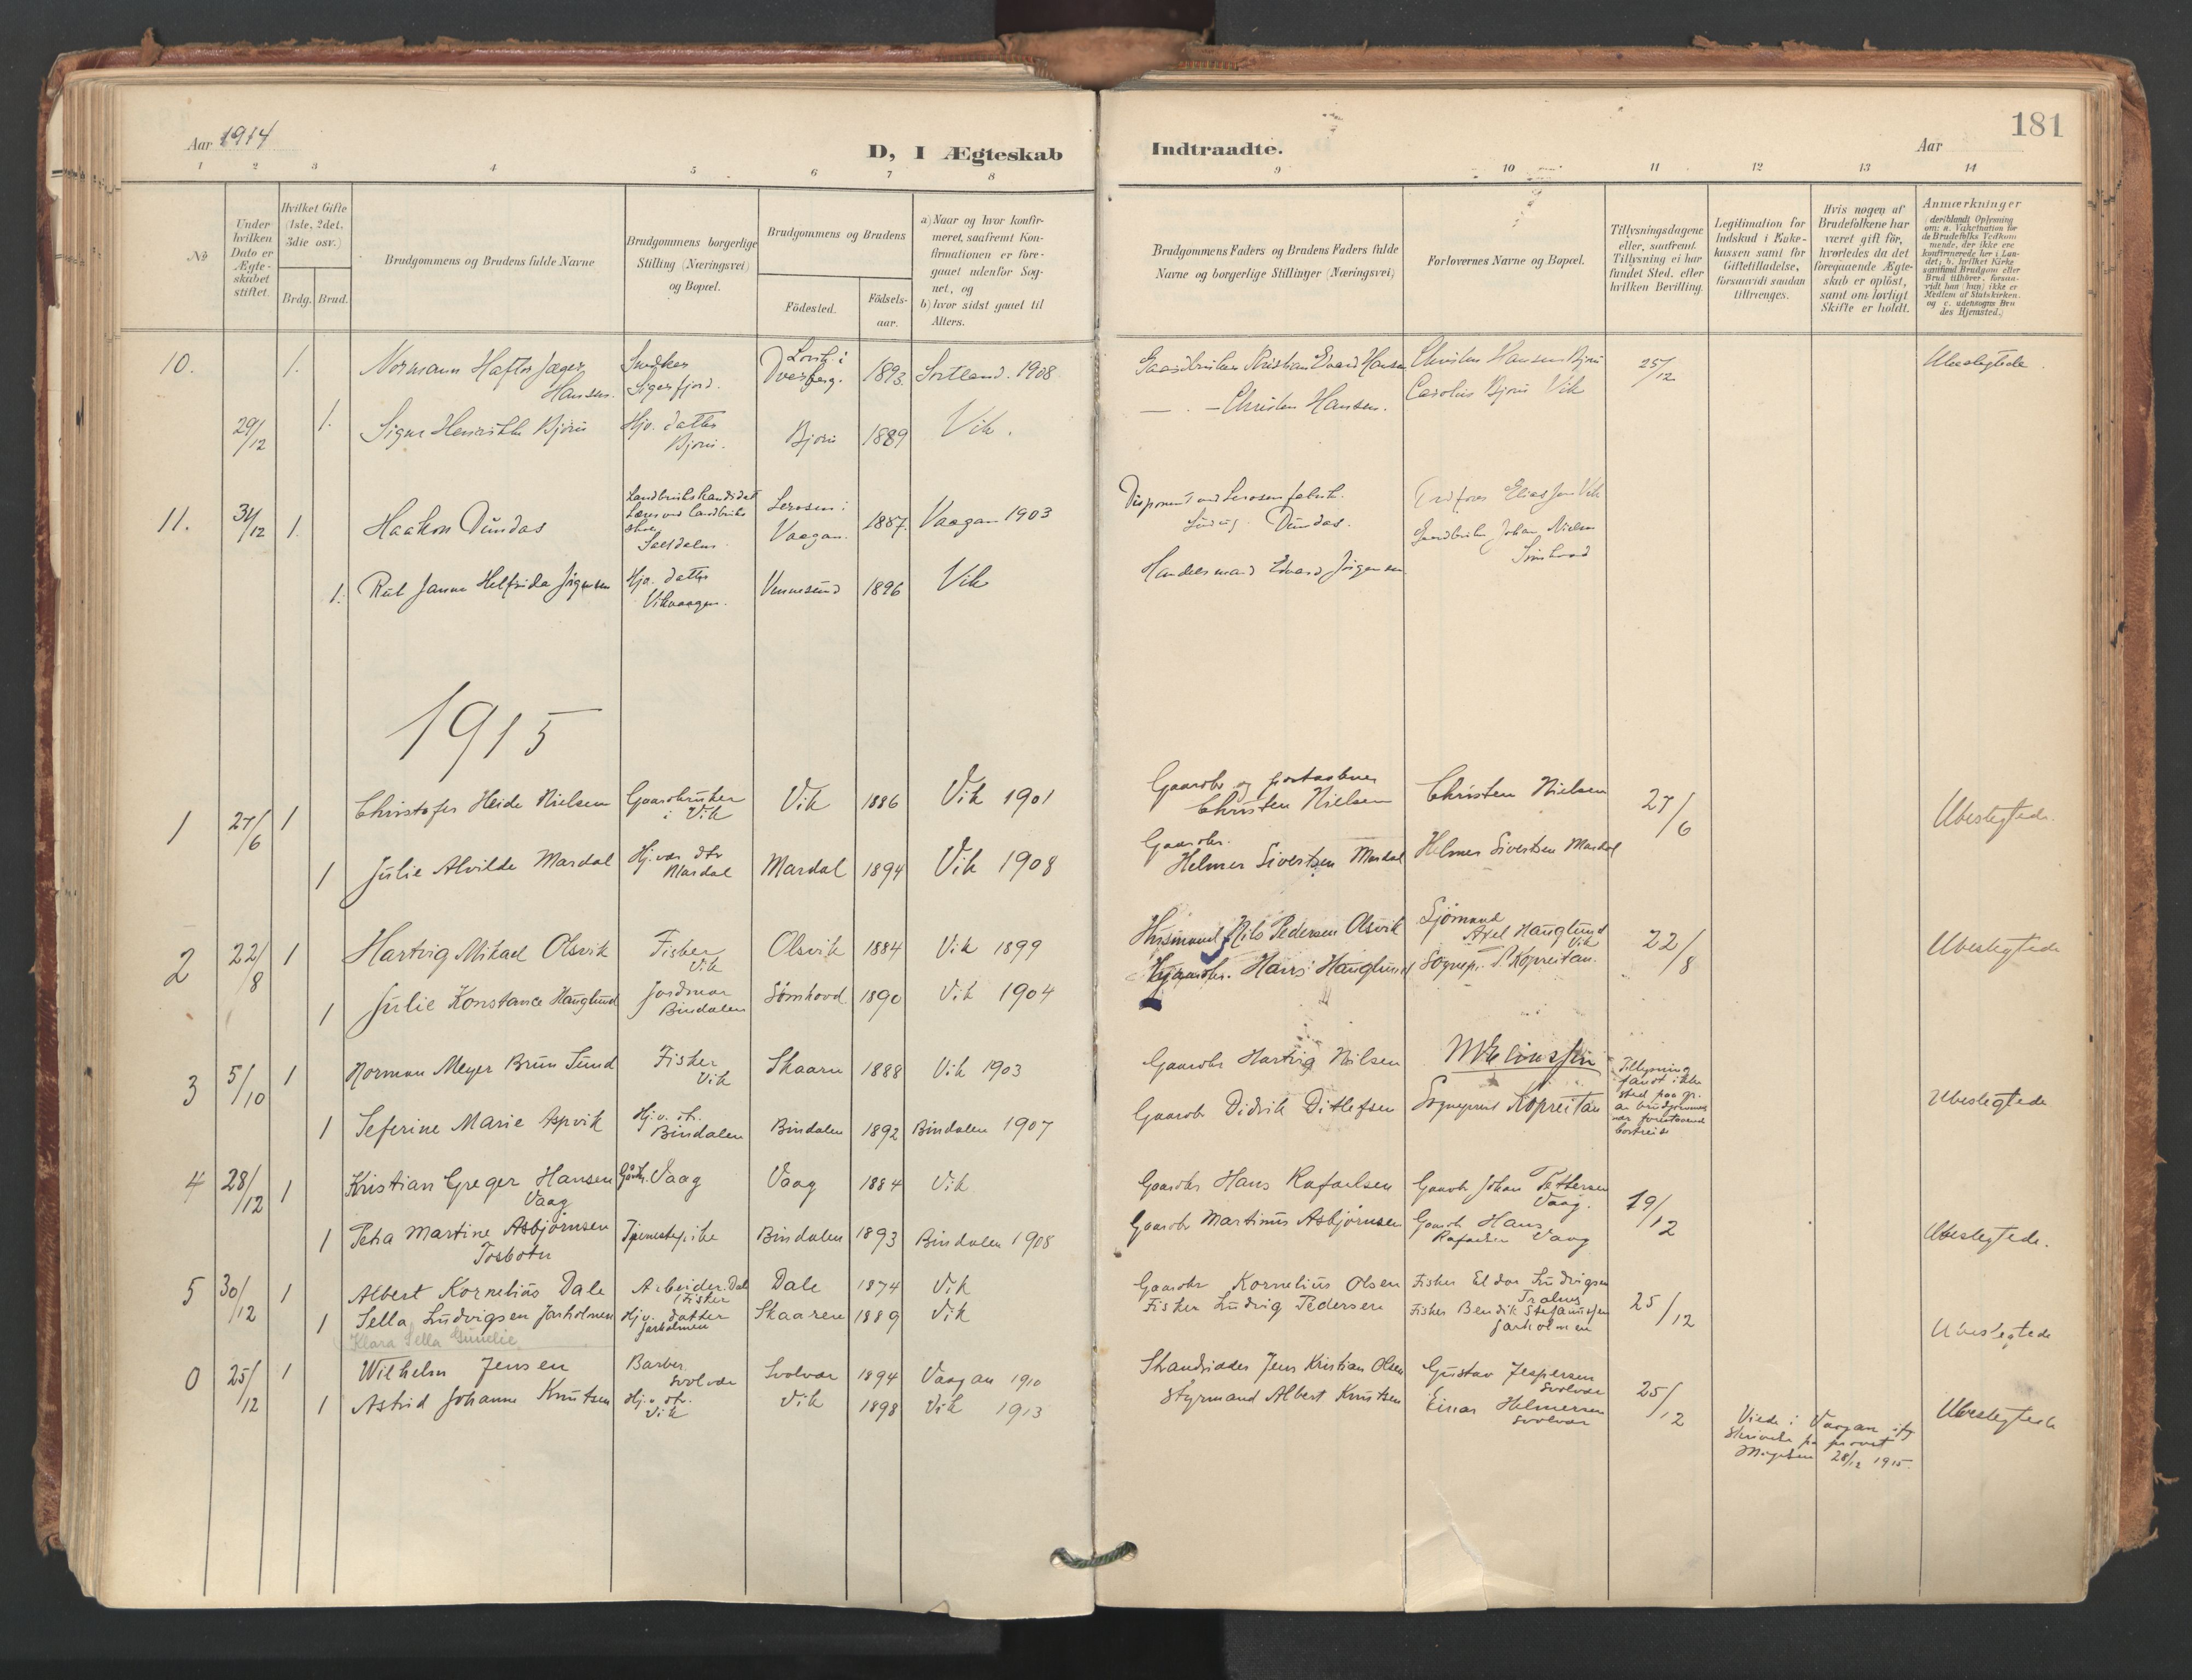 Aar 1914
D, I Ægteskab
Indtraadte.
Aar
181
1 2 3 4 5 6 7 8 9 10 11 12 13 14
No
Under hvilken Dato er Ægteskabet stiftet.
Hvilket Gifte (1ste, 2det, 3die osv.)
Brdg. Brud.
Brudgommens og Brudens fulde Navne
Brudgommens borgerlige Stilling (Næringsvei) og Bopæl.
Brudgommens og Brudens
Födested.
Födsels-aar.
a) Naar og hvor konfirmeret, saafremt Konfirmationen er foregaaet udenfor Sognet, og
b) hvor sidst gaaet til Alters.
Brudgommens Faders og Brudens Faders fulde Navne og borgerlige Stillinger (Næringsvei)
Forlovernes Navne og Bopæl.
Tillysningsdagene eller, saafremt Tillysning ei har fundet Sted, efter hvilken Bevilling.
Legitimation for Indskud i Enkekassen samt for Giftetilladelse, forsaavidt saadan tiltrænges.
Hvis nogen af Brudefolkene har været gift för, hvorledes da det foregaaende Ægteskab er oplöst, samt om lovligt Skifte er holdt.
Anmærkninger
10. 1. Normann Haftor Jæger Hansen. Snedker Sigerfjord. 1893. Sortland. 1908 Gaardbruker Kristian Edvard Hansen 25/12 Ubeslegtede
29/12 1. Bjørü Hjv. datter Bjørü. Bjørü 1889 Vik. Christen Hansen. Bjørü Vik
11. 31/12 1. Haakon Dundas Landbrukskandidat Vaagan. 1887. Vaagan 1903 Dundas.
1. Rut Helfrida Hjv. datter Vikvaagen. Vennesund 1896 Vik Handelsmand Edvard
1915
1 27/6 1 Christofer Heide Nielsen Gaardbruker i Vik Vik 1886 Vik 1901 Gaardbr og postaabner Christen Nielsen Christen Nielsen 27/6 Ubeslegtede.
1 Julie Alvilde Mardal Hj.vær. dtr Mardal Mardal 1894 Vik 1908 Gaardbr. Helmer Sivertsen Mardal Helmer Sivertsen Mardal
2 22/8 1 Hartvig Mikael Olsvik Fisker Vik Olsvik 1884 Vik 1899 Husmand Nils Pedersen Olsvik Sjömand Axel Hauglund Vik 22/8 Ubeslegtede
1 Julie Konstance Hauglund Jordmor Bindalen Sømhovd 1890 Vik 1904 Gaardbr. Hans Hauglund Sognepr. Kopreitan.
3 5/10 1 Norman Meyer Brun Sund Fisker Vik Skaaren 1888 Vik 1903 Gaardbr Hartvig Nilsen Tillysning fandt ikke sted paa gr. av brudgommens nær forestaaende bortreise Ubeslegtede
1 Seferine Marie Aspvik Hj.v. dtr. Bindalen Bindalen 1892 Bindalen 1907 Gaardbr Didrik Ditlefsen Sogneprest Kopreitan
4 28/12 1 Kristian Greger Hansen Vaag Gårdbr. Vaag Vaag 1884 Vik Gaardbr Hans Rafaelsen Gaardbr Johan Pettersen Vaag. 19/12
1 Petra Martine Asbjørnsen Tosbotn Tjenestepike Bindalen 1893 Bindalen 1908 Gaardbr Martinus Asbjørnsen Gaardb Hans Rafaelsen Vaag Ubeslegtede.
5 30/12 1 Albert Kornelius Dale Arbeider. Dale Fisker Dale 1874 Vik Gaardbr Kornelius Olsen Fisker Eldor Ludvigsen 25/12
1 Sella Ludvigsen Jarholmen Hj.v. datter Jarholmen Skaaren 1889 Vik Fisker Ludvig Pedersen Fisker Bendik Stefanussen Jarholmen Ubeslegtede
Klara Sella Gunelie
0 25/12 1 Wilhelm Jensen Barber Svolvær Svolvær 1894 Vaagan 1910 Strandsidder Jens Kristian Olsen Gustav Jespersen Svolvær 25/12
1 Astrid Johanne Knutsen Hj.v. dtr. Vik Vik 1898 Vik 1913 Styrmand Albert Knutsen Einar Helmersen Svolvær Ubeslegtede
Viede i Vaagan
28/12 1915.